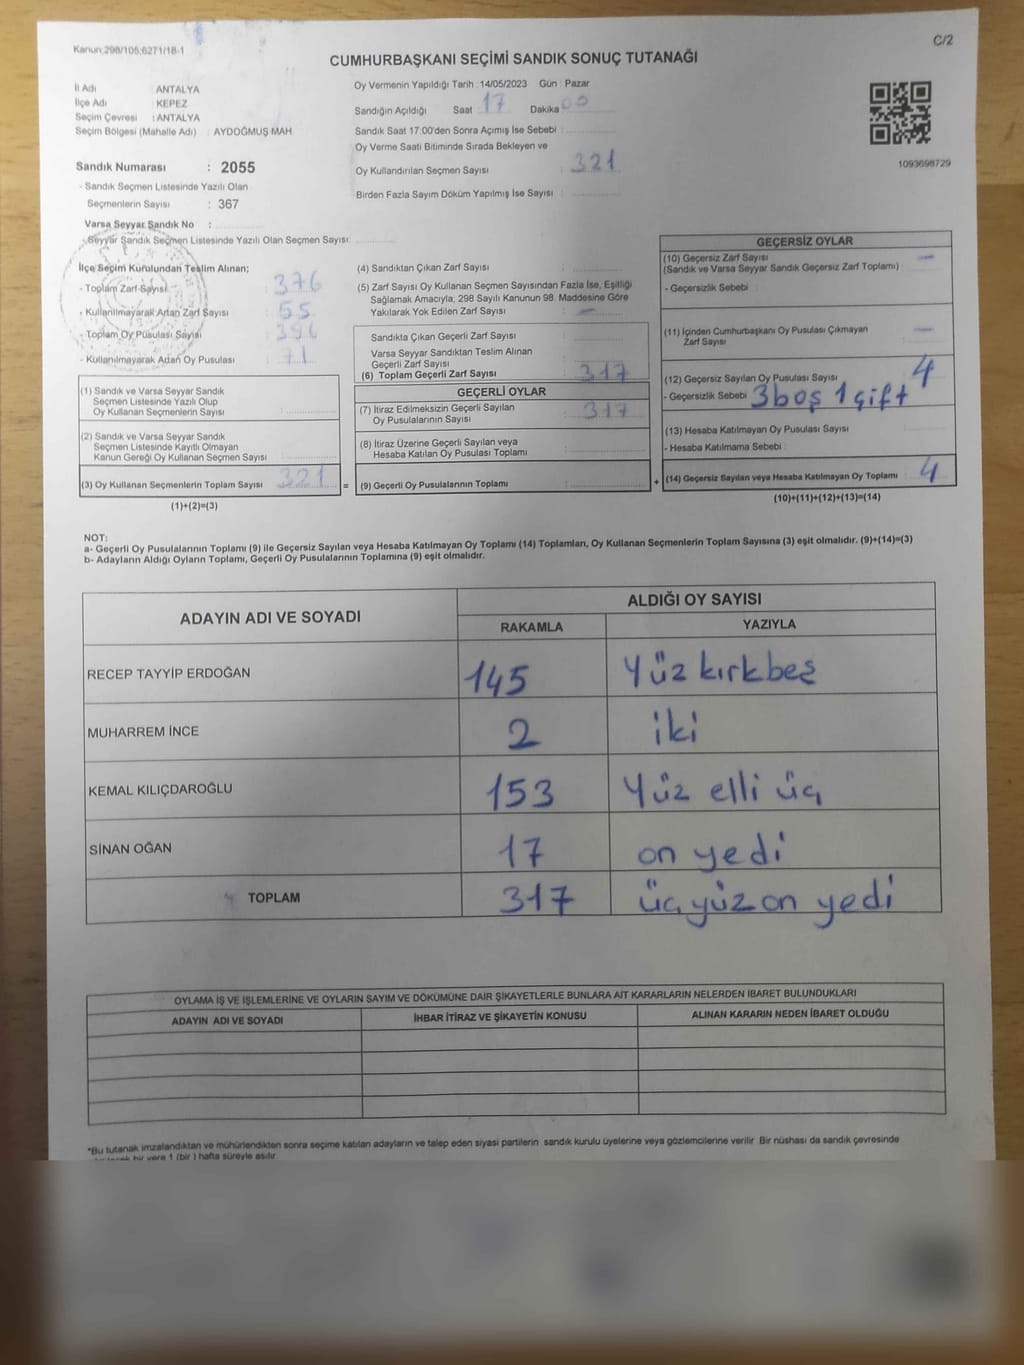 Kanun:298/105,6271/18-1
C/2
CUMHURBAŞKANI SEÇİMİ SANDIK SONUÇ TUTANAĞI
İl Adı ANTALYA
İlçe Adı KEPEZ
Seçim Çevresi : ANTALYA
Seçim Bölgesi (Mahalle Adı) : AYDOĞMUŞ MAH.
Sandık Numarası : 2055
- Sandık Seçmen Listesinde Yazılı Olan
Seçmenlerin Sayısı : 367
Varsa Seyyar Sandık No :
- Seyyar Sandık Seçmen Listesinde Yazılı Olan Seçmen Sayısı:
Oy Vermenin Yapıldığı Tarih : 14/05/2023 Gün : Pazar
Sandığın Açıldığı Saat 17 Dakika 00
Sandık Saat 17:00'den Sonra Açımış İse Sebebi :
Oy Verme Saati Bitiminde Sırada Bekleyen ve
Oy Kullandırılan Seçmen Sayısı : 321
Birden Fazla Sayım Döküm Yapılmış İse Sayısı :
1093698729
İlçe Seçim Kurulundan Teslim Alınan;
- Toplam Zarf Sayısı : 376
- Kullanılmayarak Artan Zarf Sayısı : 55
- Toplam Oy Pusulası Sayısı : 396
- Kullanılmayarak Artan Oy Pusulası : 71
(1) Sandık ve Varsa Seyyar Sandık
Seçmen Listesinde Yazılı Olup
Oy Kullanan Seçmenlerin Sayısı :
(2) Sandık ve Varsa Seyyar Sandık
Seçmen Listesinde Kayıtlı Olmayan
Kanun Gereği Oy Kullanan Seçmen Sayısı :
(3) Oy Kullanan Seçmenlerin Toplam Sayısı : 321
(1)+(2)=(3)
=
(4) Sandıktan Çıkan Zarf Sayısı :
(5) Zarf Sayısı Oy Kullanan Seçmen Sayısından Fazla İse, Eşitliği
Sağlamak Amacıyla, 298 Sayılı Kanunun 98. Maddesine Göre
Yakılarak Yok Edilen Zarf Sayısı : —
Sandıkta Çıkan Geçerli Zarf Sayısı :
Varsa Seyyar Sandıktan Teslim Alınan
Geçerli Zarf Sayısı :
(6) Toplam Geçerli Zarf Sayısı : 317
GEÇERLİ OYLAR
(7) İtiraz Edilmeksizin Geçerli Sayılan : 317
Oy Pusulalarının Sayısı
(8) İtiraz Üzerine Geçerli Sayılan veya
Hesaba Katılan Oy Pusulası Toplamı :
(9) Geçerli Oy Pusulalarının Toplamı :
+
GEÇERSİZ OYLAR
(10) Geçersiz Zarf Sayısı —
(Sandık ve Varsa Seyyar Sandık Geçersiz Zarf Toplamı) :
- Geçersizlik Sebebi :
(11) İçinden Cumhurbaşkanı Oy Pusulası Çıkmayan —
Zarf Sayısı :
(12) Geçersiz Sayılan Oy Pusulası Sayısı : 4
- Geçersizlik Sebebi 3 boş 1 çift
(13) Hesaba Katılmayan Oy Pusulası Sayısı :
- Hesaba Katılmama Sebebi :
(14) Geçersiz Sayılan veya Hesaba Katılmayan Oy Toplamı : 4
(10)+(11)+(12)+(13)=(14)
NOT:
a- Geçerli Oy Pusulalarının Toplamı (9) ile Geçersiz Sayılan veya Hesaba Katılmayan Oy Toplamı (14) Toplamları, Oy Kullanan Seçmenlerin Toplam Sayısına (3) eşit olmalıdır. (9)+(14)=(3)
b- Adayların Aldığı Oyların Toplamı, Geçerli Oy Pusulalarının Toplamına (9) eşit olmalıdır.
ADAYIN ADI VE SOYADI ALDIĞI OY SAYISI
RAKAMLA YAZIYLA
RECEP TAYYİP ERDOĞAN 145 Yüz kırkbeş
MUHARREM İNCE 2 iki
KEMAL KILIÇDAROĞLU 153 Yüz elli üç
SİNAN OĞAN 17 on yedi
TOPLAM 317 üçyüz on yedi
OYLAMA İŞ VE İŞLEMLERİNE VE OYLARIN SAYIM VE DÖKÜMÜNE DAİR ŞİKAYETLERLE BUNLARA AİT KARARLARIN NELERDEN İBARET BULUNDUKLARI
ADAYIN ADI VE SOYADI İHBAR İTİRAZ VE ŞİKAYETİN KONUSU ALINAN KARARIN NEDEN İBARET OLDUĞU
*Bu tutanak imzalandıktan ve mühürlendikten sonra seçime katılan adayların ve talep eden siyasi partilerin sandık kurulu üyelerine veya gözlemcilerine verilir. Bir nüshası da sandık çevresinde
bir yere 1 (bir) hafta süreyle asılır.